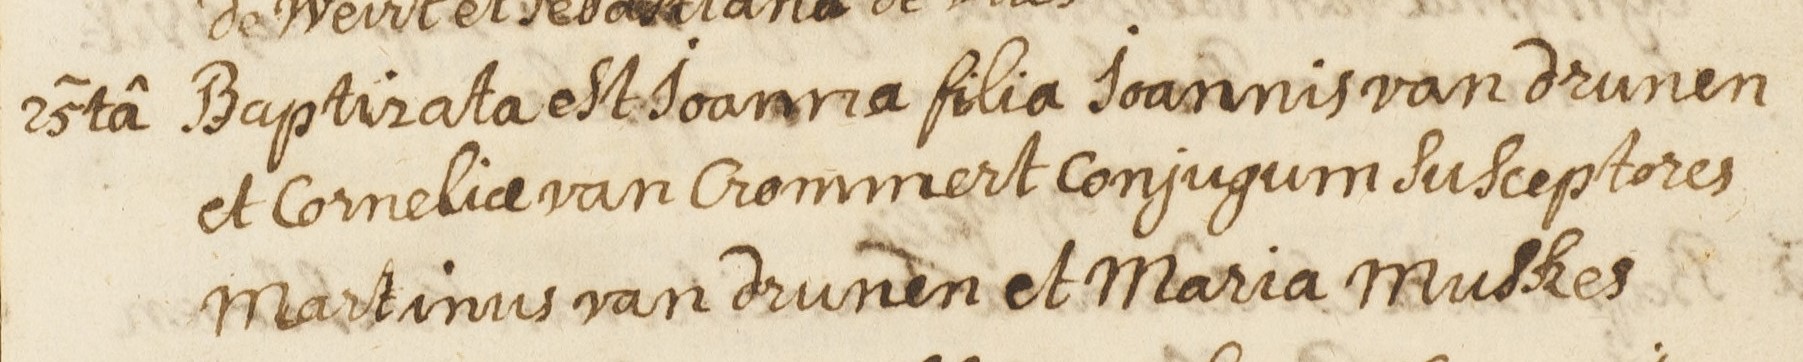 de Weirt et Sebastiana de
25ta Baptizata est Joanna filia Joannis van drunen
et Corneliæ van Crommert Conjugum Susceptores
Martinus van drunen et Maria Muskes